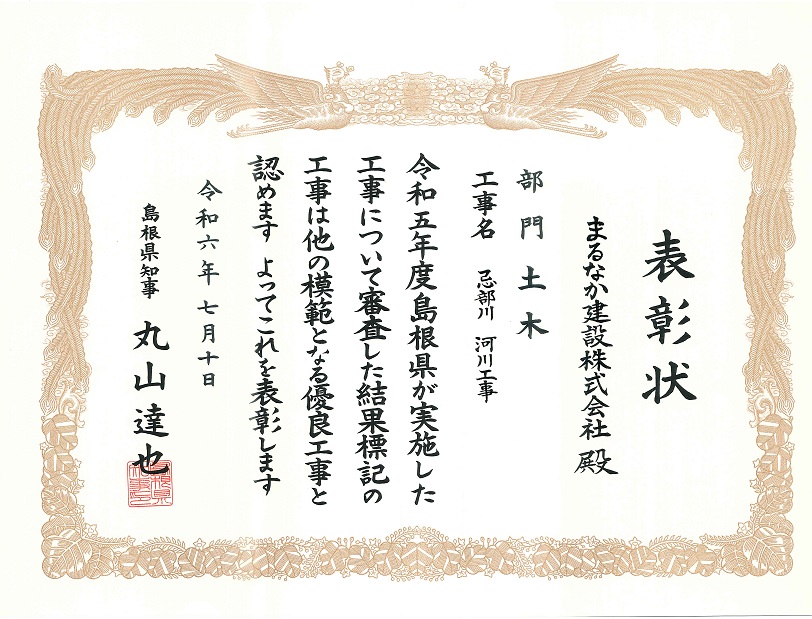 表彰状
まるなか建設株式会社 殿
部門 土木
工事名 忌部川 河川工事
令和五年度島根県が実施した
工事について審査した結果標記の
工事は他の模範となる優良工事と
認めます よってこれを表彰します
令和六年七月十日
島根県知事 丸山達也
島根県知事印